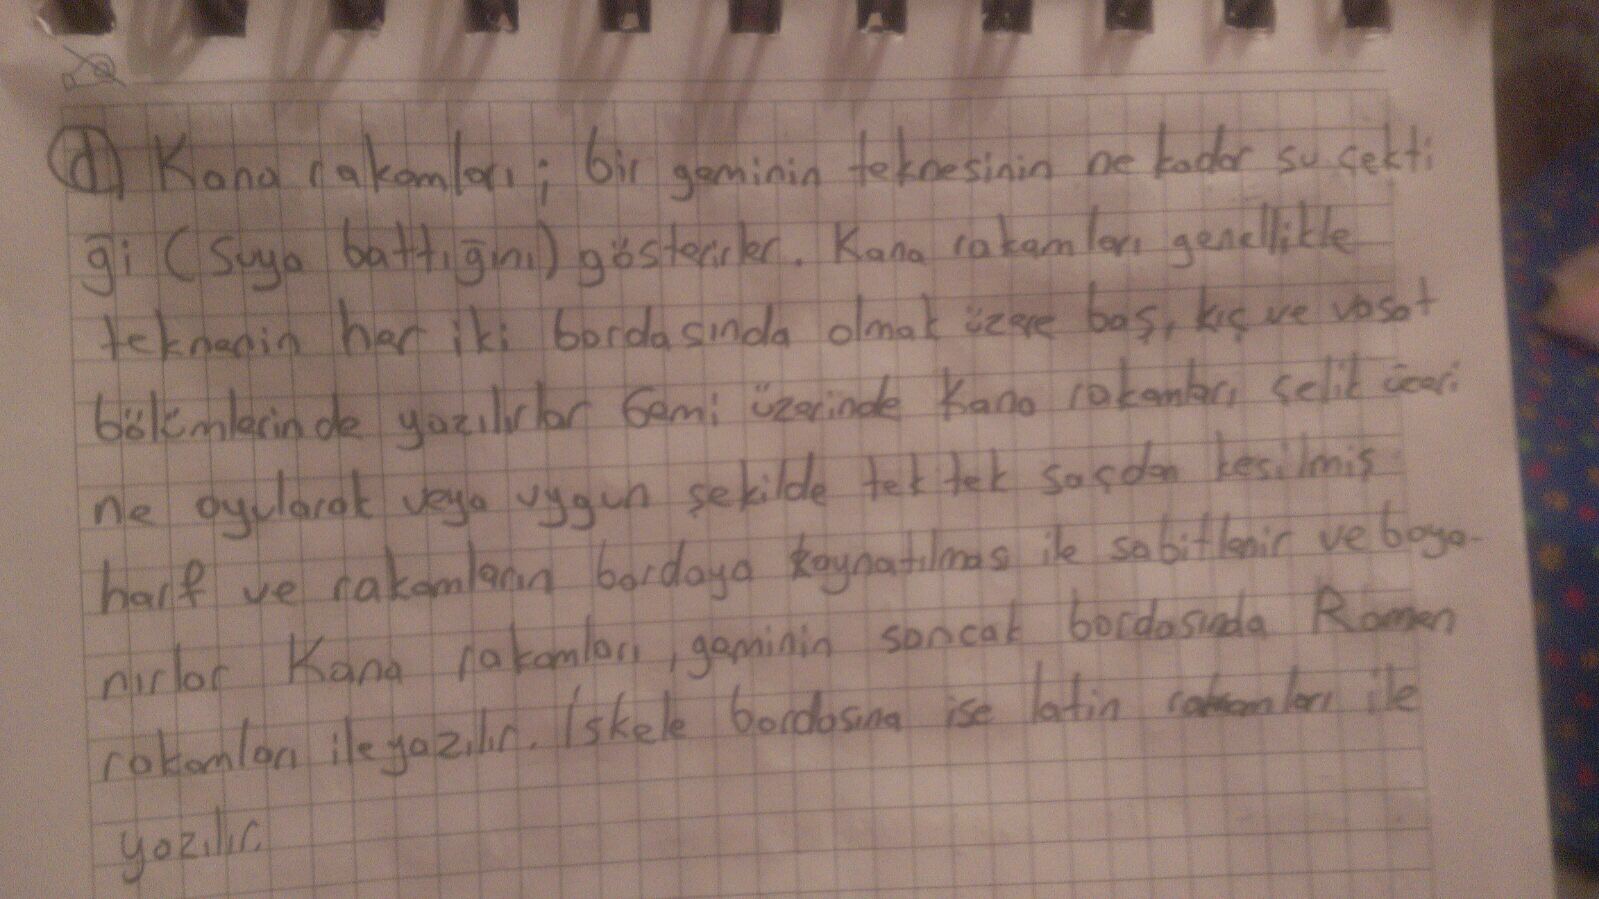 d) Kana rakamları; bir geminin teknesinin ne kadar su çekti
ği (Suya battığını) gösterirler. Kana rakamları genellikle
teknenin her iki bordasında olmak üzere baş, kıç ve vasat
bölümlerinde yazılırlar Gemi üzerinde Kana rakamları çelik üzeri
ne oyularak veya uygun şekilde tek tek saçdan kesilmiş
harf ve rakamların bordaya kaynatılması ile sabitlenir ve boya-
nırlar Kana rakamları, geminin sancak bordasında Romen
rakamları ile yazılır. İskele bordasına ise latin rakamları ile
yazılır.